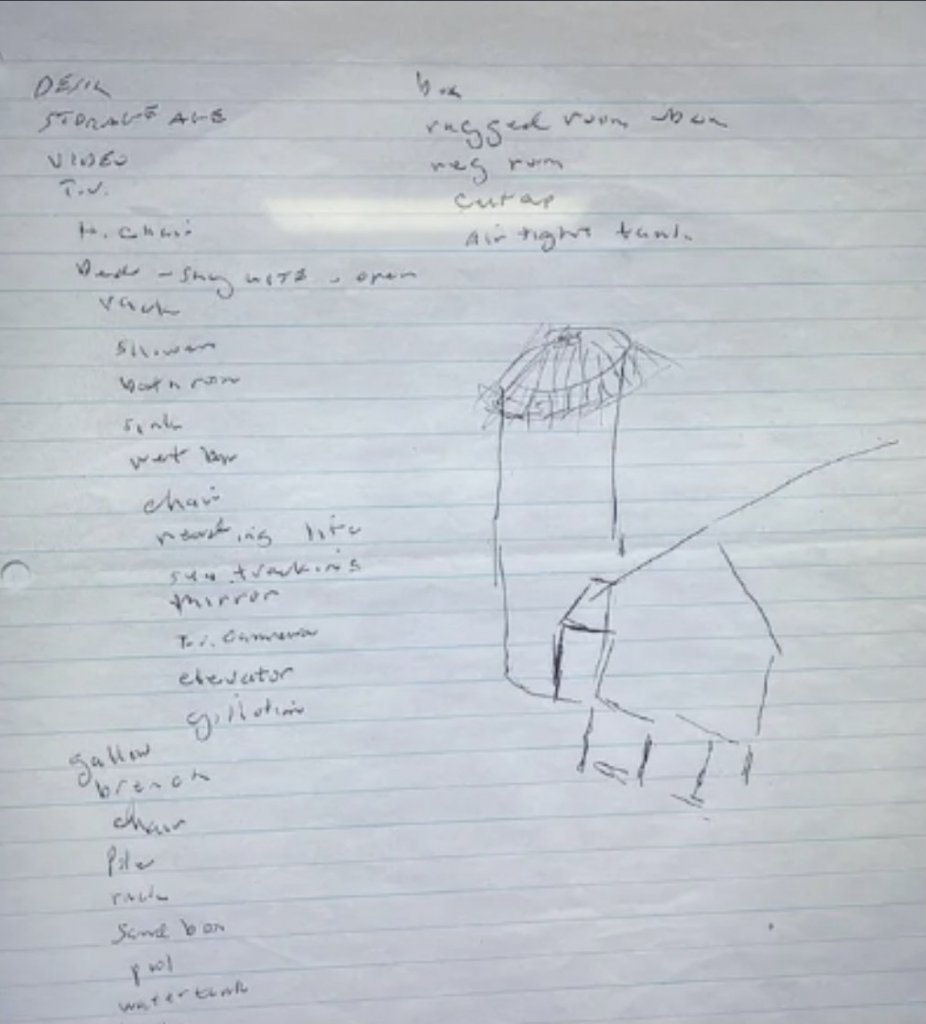 DESK
STORAGE
VIDEO
T.V.
H. chair
open
rack
shower
bathroom
sink
wet bar
chair
reading lite
sun tracking
mirror
T.V. Camera
elevator
gillotin
gallow
chair
Pole
rack
Sand box
pool
watertank
box
rugged room
room
Cut up
Air tight tank